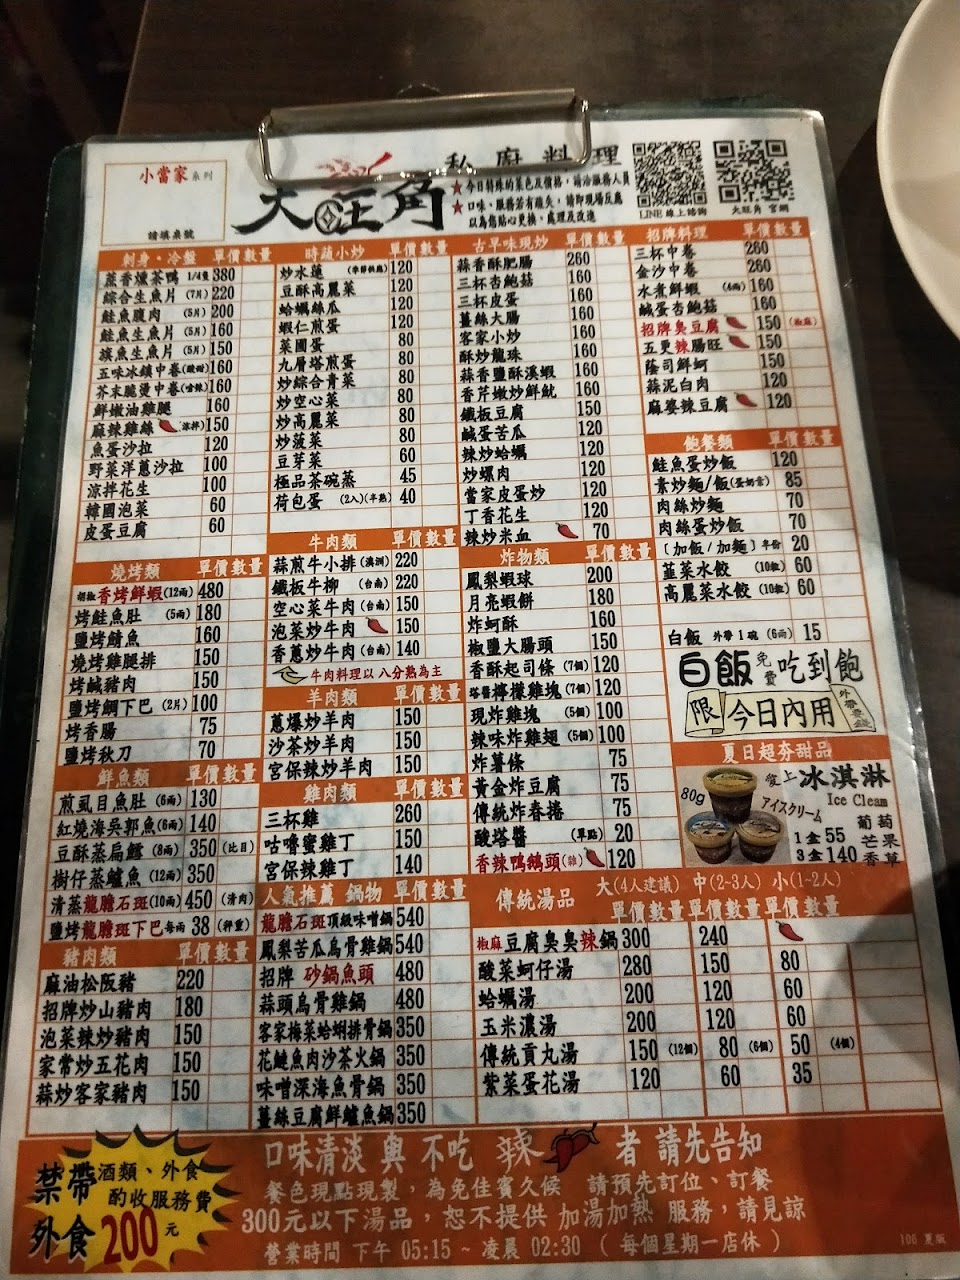 小當家系列
請填桌號
大旺角
私廚料理
★今日特殊的菜色及價格,請洽服務人員
★口味、服務若有疏失,請即現場反應
以為您貼心更換、處理及改進
LINE 線上諮詢
大旺角 官網
刺身·冷盤 單價 數量
蔗香燻茶鴨 1/4隻 380
綜合生魚片 (7片) 220
鮭魚腹肉 (5片) 200
鮭魚生魚片 (5片) 160
旗魚生魚片 (5片) 150
五味冰鎮中卷(酸甜) 160
芥末脆燙中卷(嗆辣) 160
鮮嫩油雞腿 160
麻辣雞絲 (涼拌) 150
魚蛋沙拉 120
野菜洋蔥沙拉 100
涼拌花生 100
韓國泡菜 60
皮蛋豆腐 60
燒烤類 單價 數量
胡椒香烤鮮蝦(12兩) 480
烤鮭魚肚 (5兩) 180
鹽烤鯖魚 160
燒烤雞腿排 150
烤鹹豬肉 150
鹽烤鯛下巴 (2片) 100
烤香腸 75
鹽烤秋刀 70
鮮魚類 單價 數量
煎虱目魚肚 (6兩) 130
紅燒海吳郭魚(6兩) 140
豆酥蒸扁鱈 (8兩) 350 (比目)
樹仔蒸鱸魚 (12兩) 350
清蒸龍膽石斑(10兩) 450 (清肉)
鹽烤龍膽斑下巴 每兩 38 (秤重)
豬肉類 單價 數量
麻油松阪豬 220
招牌炒山豬肉 180
泡菜辣炒豬肉 150
家常炒五花肉 150
蒜炒客家豬肉 150
時蔬小炒 單價 數量
炒水蓮 (季節供應) 120
豆酥高麗菜 120
蛤蠣絲瓜 120
蝦仁煎蛋 120
菜圃蛋 80
九層塔煎蛋 80
炒綜合青菜 80
炒空心菜 80
炒高麗菜 80
炒菠菜 80
豆芽菜 60
極品茶碗蒸 45
荷包蛋 (2入)(半熟) 40
牛肉類 單價 數量
蒜煎牛小排 (澳洲) 220
鐵板牛柳 (台南) 220
空心菜牛肉 (台南) 150
泡菜炒牛肉 150
香蔥炒牛肉 (台南) 140
牛肉料理以 八分熟為主
羊肉類 單價 數量
蔥爆炒羊肉 150
沙茶炒羊肉 150
宮保辣炒羊肉 150
雞肉類 單價 數量
三杯雞 260
咕嚕蜜雞丁 150
宮保辣雞丁 140
人氣推薦 鍋物 單價 數量
龍膽石斑頂級味噌鍋 540
鳳梨苦瓜烏骨雞鍋 540
招牌 砂鍋魚頭 480
蒜頭烏骨雞鍋 480
客家梅菜蛤蜊排骨鍋 350
花鰱魚肉沙茶火鍋 350
味噌深海魚骨鍋 350
薑絲豆腐鮮鱸魚鍋 350
古早味現炒 單價 數量
蒜香酥肥腸 260
三杯杏鮑菇 160
三杯皮蛋 160
薑絲大腸 160
客家小炒 160
酥炒龍珠 160
蒜香鹽酥溪蝦 160
香芹嫩炒鮮魷 160
鐵板豆腐 150
鹹蛋苦瓜 120
辣炒蛤蠣 120
炒螺肉 120
當家皮蛋炒 120
丁香花生 120
辣炒米血 70
炸物類 單價 數量
鳳梨蝦球 200
月亮蝦餅 180
炸蚵酥 160
椒鹽大腸頭 150
香酥起司條 (7個) 120
塔醬檸檬雞塊 (7個) 120
現炸雞塊 (5個) 100
辣味炸雞翅 (5個) 100
炸薯條 75
黃金炸豆腐 75
傳統炸春捲 75
酸塔醬 (單點) 20
香辣鴨鵝頭(雜) 120
招牌料理 單價 數量
三杯中卷 260
金沙中卷 260
水煮鮮蝦 (4兩) 160
鹹蛋杏鮑菇 160
招牌臭豆腐 150 (椒麻)
五更辣腸旺 150
蔭司鮮蚵 150
蒜泥白肉 120
麻婆辣豆腐 120
飽餐類 單價 數量
鮭魚蛋炒飯 120
素炒麵/飯(蛋奶素) 85
肉絲炒麵 70
肉絲蛋炒飯 70
〔加飯/加麵〕半份 20
韮菜水餃 (10粒) 60
高麗菜水餃 (10粒) 60
白飯 外帶1碗 (6兩) 15
白飯 免費 吃到飽
限 今日內用
夏日超夯甜品
愛上冰淇淋
80g
アイスクリーム
Ice Cleam
1盒55
3盒140
葡萄
芒果
香草
傳統湯品 大(4人建議) 中(2~3人) 小(1~2人)
單價 數量 單價 數量 單價 數量
椒麻豆腐臭臭辣鍋 300 240
酸菜蚵仔湯 280 150 80
蛤蠣湯 200 120 60
玉米濃湯 200 120 60
傳統貢丸湯 150 (12個) 80 (6個) 50 (4個)
紫菜蛋花湯 120 60 35
禁帶 酒類、外食
酌收服務費
外食200元
口味清淡 與 不吃 辣 者 請先告知
餐色現點現製,為免佳賓久候 請預先訂位、訂餐
300元以下湯品,恕不提供 加湯加熱 服務,請見諒
營業時間 下午 05:15 ~ 凌晨 02:30 ( 每個星期一店休 )
106 夏版